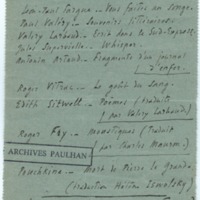 Léon-Paul Fargue - Vous faites un songe.
Paul Valéry. - Souvenirs littéraires.
Valery Larbaud. - Ecrit dans le Sud-Express.
Jules Supervielle. - Whisper.
Antonin Artaud. - Fragments d'un journal
d'enfer.
Roger Vitrac. - Le goût du sang.
Edith Sitwell. - Poèmes (traduits
par Valery Larbaud)
Roger Fry. - (traduit
par Charles Mauron.)
ARCHIVES PAULHAN
Pouchkine. - Mort de Pierre le Grand
(traduction Hélène Iswolsky)